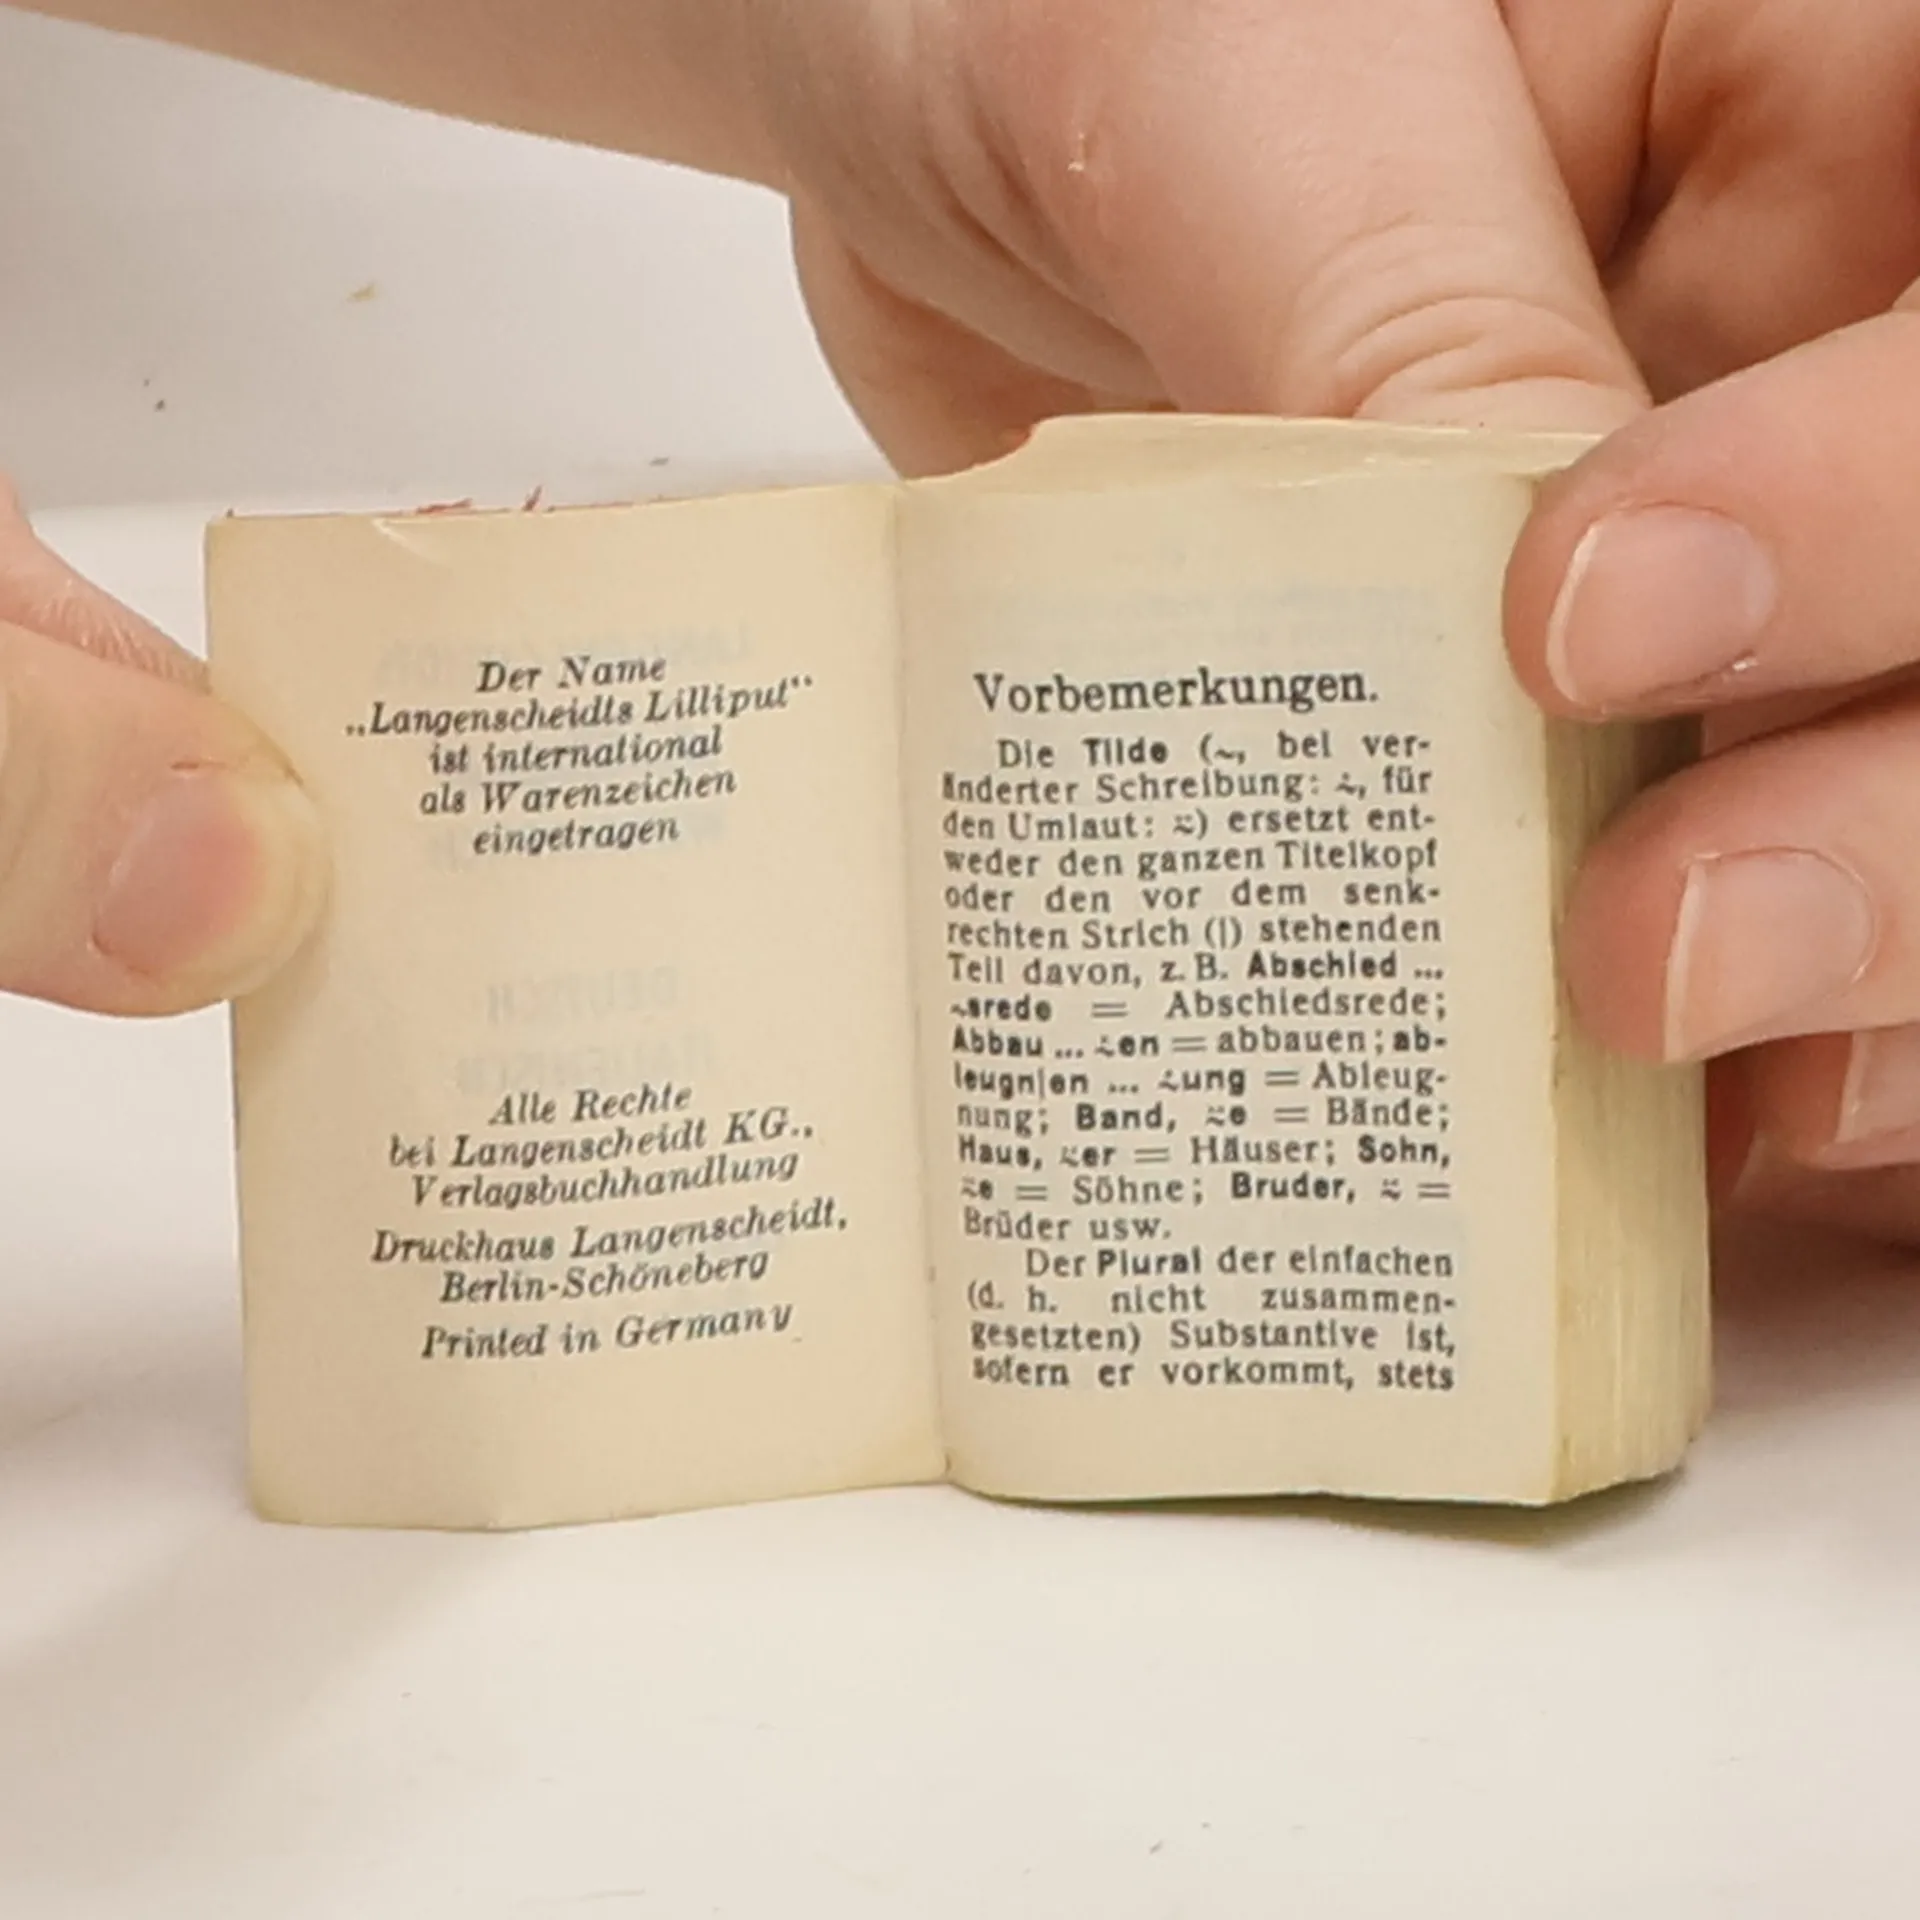 Der Name
„Langenscheidts Lilliput“
ist international
als Warenzeichen
eingetragen
Alle Rechte
bei Langenscheidt KG.,
Verlagsbuchhandlung
Druckhaus Langenscheidt,
Berlin-Schöneberg
Printed in Germany
Vorbemerkungen.
Die Tilde (~, bei ver-
änderter Schreibung: ⩪, für
den Umlaut: ~̈) ersetzt ent-
weder den ganzen Titelkopf
oder den vor dem senk-
rechten Strich (|) stehenden
Teil davon, z. B. Abschied ...
~srede = Abschiedsrede;
Abbau ... ⩪en = abbauen; ab-
leugn|en ... ⩪ung = Ableug-
nung; Band, ~̈e = Bände;
Haus, ~̈er = Häuser; Sohn,
~̈e = Söhne; Bruder, ~̈ =
Brüder usw.
Der Plural der einfachen
(d. h. nicht zusammen-
gesetzten) Substantive ist,
sofern er vorkommt, stets